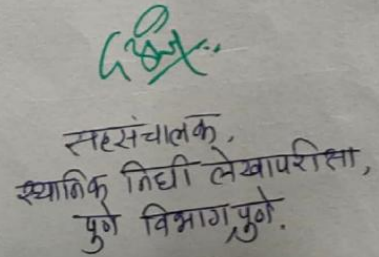 सहसंचालक,
स्थानिक निधी लेखापरीक्षा,
पुणे विभाग,पुणे.